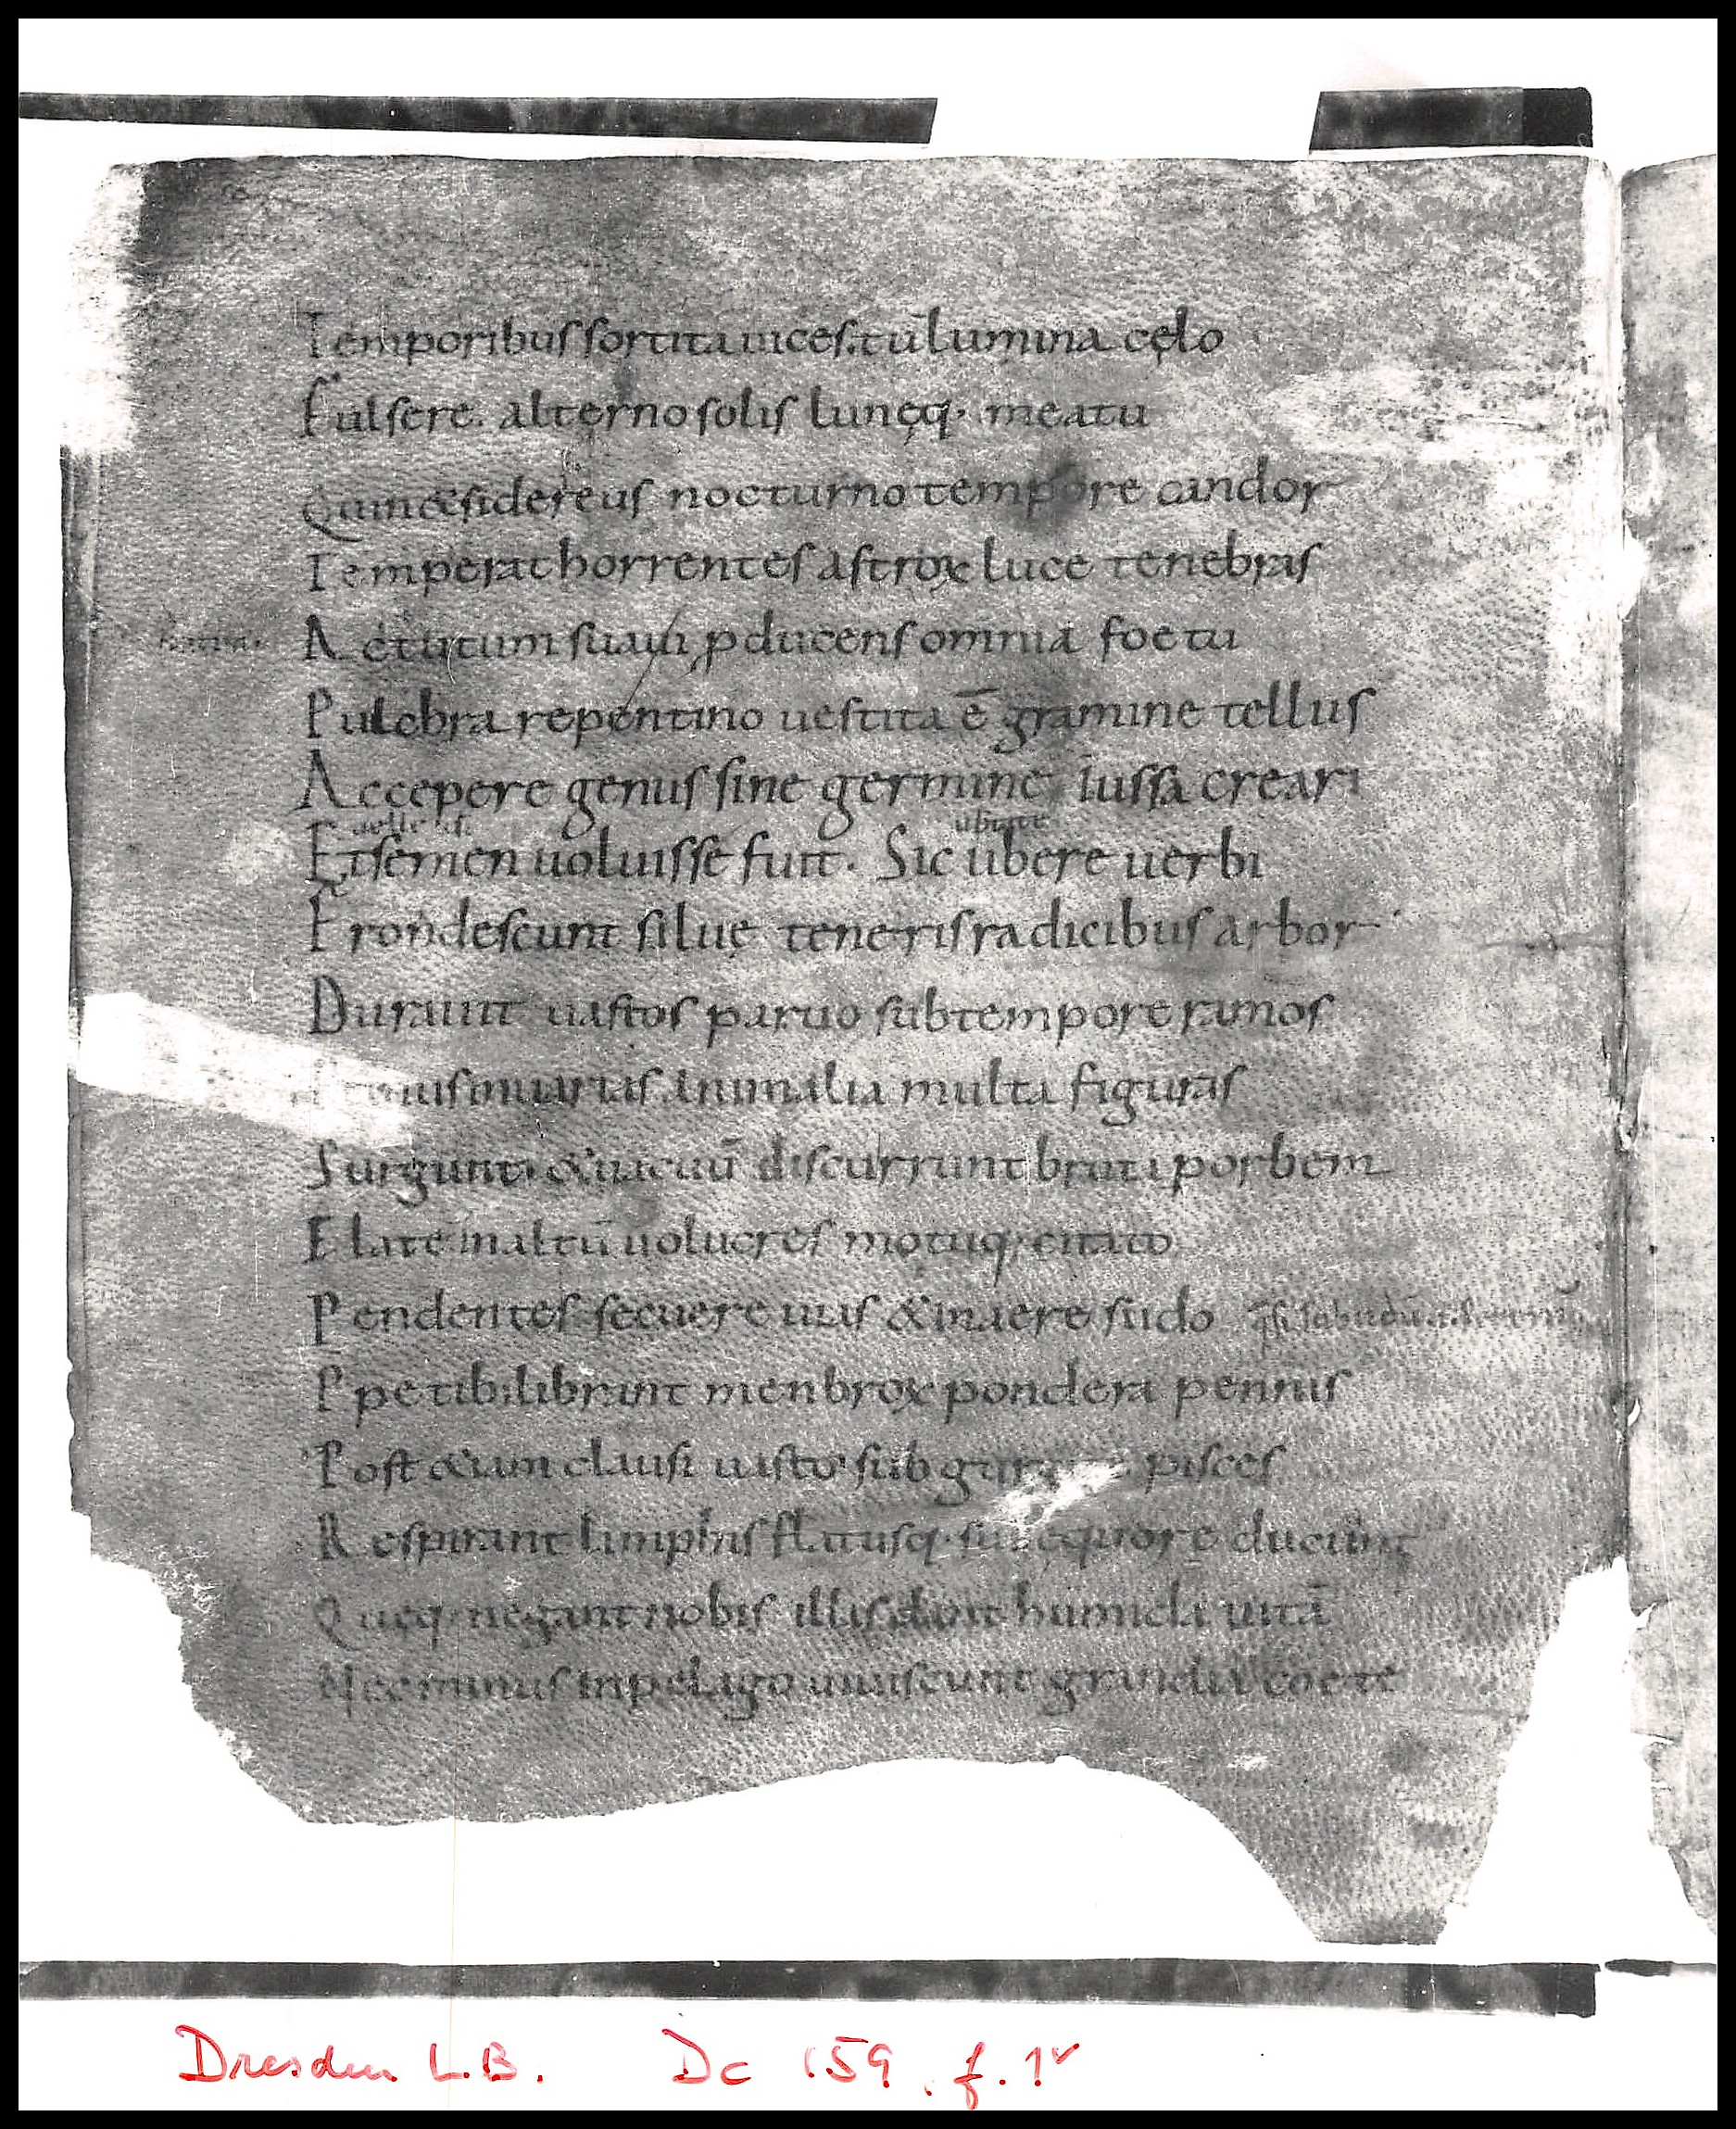 Temporibus sortita uices. tū lumina cęlo
Fulsere. alterno solis lunęq· meatu
Quin & sidereus nocturno tempore candor
Temperat horrentes astroꝝ luce tenebras
Actutum suaui ꝓducens omnia foetu
Pulchra repentino uestita ē gramine tellus
Accepere genus sine germine iussa creari
Et semen uoluisse fuit. Sic ubere uerbi
Frondescunt siluę teneris radicibus arbor
Durauit uastos paruo sub tempore ramos
in uarias animalia multa figuras
Surgunt. & uacuū discurrunt bruta p orbem
Elate in altū uolucres motuq· citato
Pendentes secuere uias & in aere sudo
Ppetib; librant menbroꝝ pondera pennis
Post &iam clausi uasto sub pisces
Respirant limphis flatusq· sub ęquore ducunt
Queq· negant nobis illis dant humida uitā
Nec minus in pelago uiuiscunt grandia coete
Dresden L.B. Dc 159. f. 1v